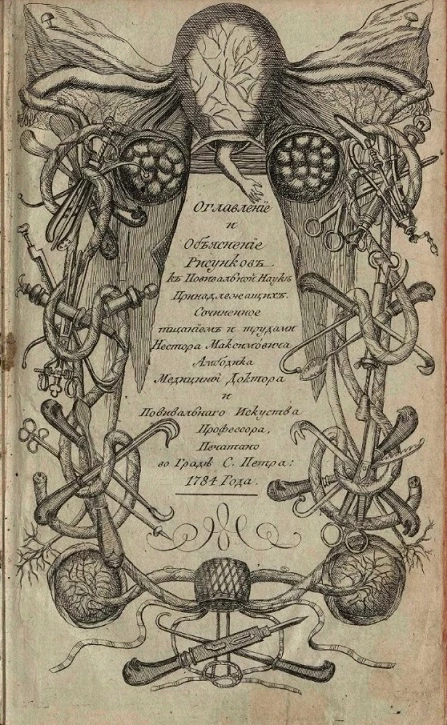 Оглавленіе
и
Объясненіе
Рисунковъ
къ Повивальной Наукѣ
Принадлежащихъ.
Сочиненное
тщаніемъ и трудами
Нестора Максимовича
Амбодика
Медицины Доктора
и
Повивальнаго Искуства
Профессора,
Печатано
во Градѣ С. Петра:
1784 Года.